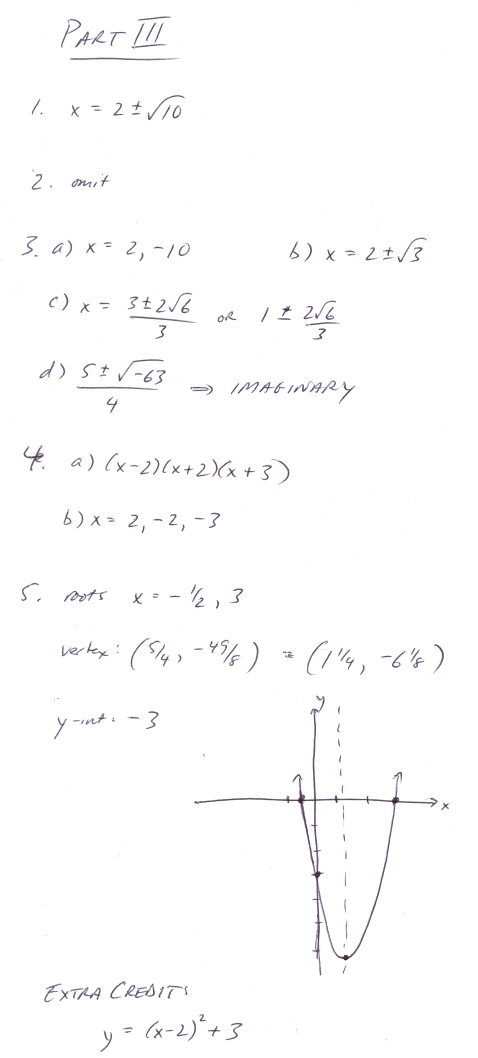 PART III
1. x = 2 ± √10
2. omit
3. a) x = 2, -10 b) x = 2 ± √3
c) x = (3 ± 2√6)/3 OR 1 ± 2√6/3
d) (5 ± √-63)/4 ⇒ IMAGINARY
4. a) (x-2)(x+2)(x+3)
b) x = 2, -2, -3
5. roots x = -1/2, 3
vertex: (5/4, -49/8) = (1 1/4, -6 1/8)
y-int: -3
y
x
EXTRA CREDIT:
y = (x-2)² + 3